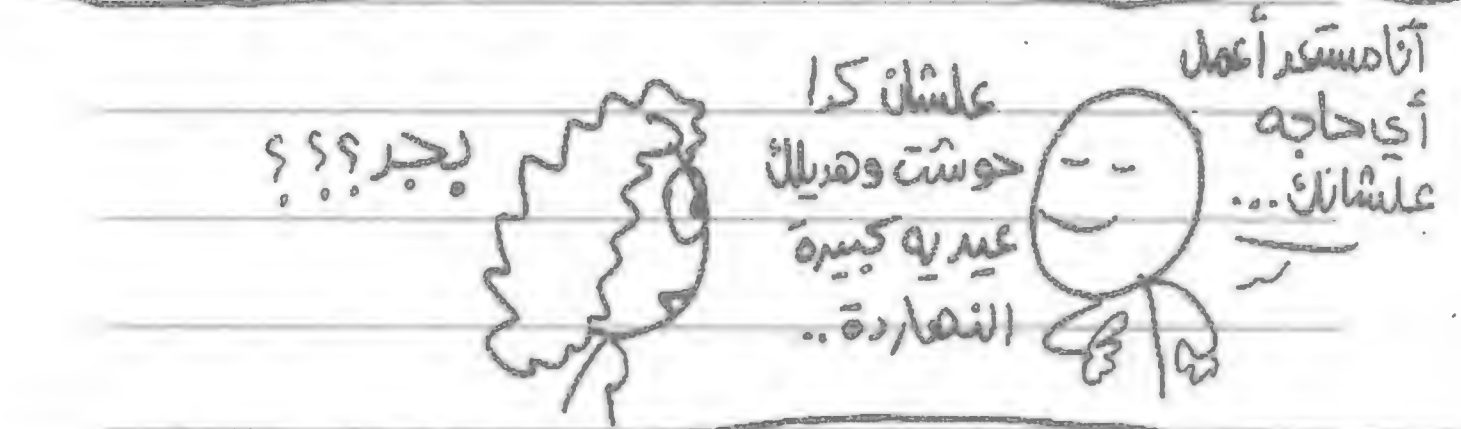 أنا مستعد أعمل
أي حاجه
علشانك...
علشان كدا
حوشت وهديلك
عيديه كبيرة
النهاردة..
بجد؟؟؟